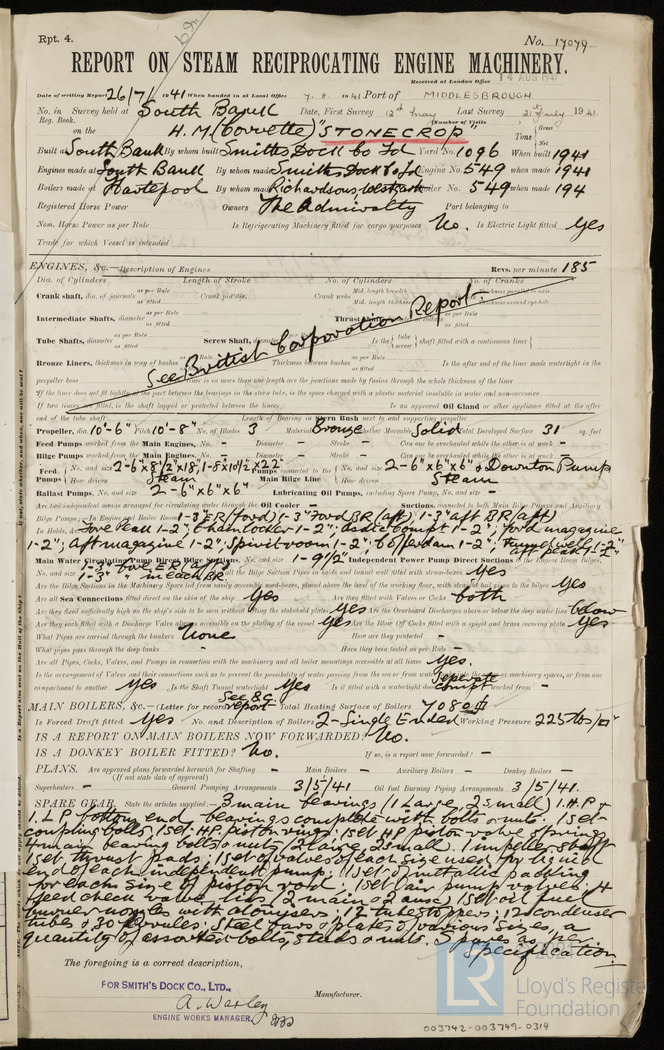 Rpt. 4.
No. 17079
REPORT ON STEAM RECIPROCATING ENGINE MACHINERY.
Received at London Office 14 AUG 1941
Date of writing Report 26/7/1941 When handed in at Local Office 7. 8. 1941 Port of MIDDLESBROUGH
No. in Survey held at South Bank Date, First Survey 12th May Last Survey 21st July 1941
Reg. Book. (Number of Visits
on the H.M. (Corvette) "STONECROP" Tons Gross Net
Built at South Bank By whom built Smiths Dock Co Ld Yard No. 1096 When built 1941
Engines made at South Bank By whom made Smiths Dock Co Ld Engine No. 549 when made 1941
Boilers made at Hartlepool By whom made Richardsons, Westgarth Boiler No. 549 when made 194
Registered Horse Power Owners The Admiralty Port belonging to
Nom. Horse Power as per Rule Is Refrigerating Machinery fitted for cargo purposes No. Is Electric Light fitted Yes
Trade for which Vessel is intended
ENGINES, &c.—Description of Engines Revs. per minute 185
Dia. of Cylinders Length of Stroke No. of Cylinders No. of Cranks
Crank shaft, dia. of journals as per Rule as fitted Crank pin dia. Crank webs Mid. length breadth Mid. length thickness
Intermediate Shafts, diameter as per Rule as fitted Thrust
Tube Shafts, diameter as per Rule as fitted Screw Shaft, diameter Is the tube screw shaft fitted with a continuous liner
See British Corporation Report.
Bronze Liners, thickness in way of bushes as per Rule as fitted Thickness between bushes as per Rule as fitted Is the after end of the liner made watertight in the
propeller boss liner is in more than one length are the junctions made by fusion through the whole thickness of the liner
If the liner does not fit tightly at the part between the bearings in the stern tube, is the space charged with a plastic material insoluble in water and non-corrosive
If two liners are fitted, is the shaft lapped or protected between the liners Is an approved Oil Gland or other appliance fitted at the after
end of the tube shaft Length of Bearing in Stern Bush next to and supporting propeller
Propeller, dia. 10'-6" Pitch 10'-8" No. of Blades 3 Material Bronze whether Moveable Solid Total Developed Surface 31 sq. feet
Feed Pumps worked from the Main Engines, No. - Diameter - Stroke - Can one be overhauled while the other is at work -
Bilge Pumps worked from the Main Engines, No. - Diameter - Stroke - Can one be overhauled while the other is at work -
Feed Pumps No. and size 2-6"x8½"x18", 1-8x10½"x22" How driven Steam Pumps connected to the Main Bilge Line No. and size 2-6"x6"x6" & Downton Pump How driven Steam
Ballast Pumps, No. and size 2-6"x6"x6" Lubricating Oil Pumps, including Spare Pump, No. and size -
Are two independent means arranged for circulating water through the Oil Cooler - Suctions, connected to both Main Bilge Pumps and Auxiliary
Bilge Pumps:—In Engine and Boiler Room 1-3" ER (ford) 1-3" ford BR (aft) 1-3" aft BR (aft)
In Holds, &c. Fore Peak 1-2"; Chain Locker 1-2"; asdic compt 1-2"; for'd magazine
1-2"; Aft magazine 1-2"; Spirit room 1-2"; Cofferdam 1-2"; Tunnel well 1-2"
aft peak 1-2"
Main Water Circulating Pump Direct Bilge Suctions, No. and size 1-9½" Independent Power Pump Direct Suctions to the Engine Room Bilges,
No. and size 1-3" in each BR. all the Bilge Suction Pipes in holds and tunnel well fitted with strum-boxes Yes
Are the Bilge Suctions in the Machinery Space led from easily accessible mud-boxes, placed above the level of the working floor, with straight tail pipes to the bilges Yes
Are all Sea Connections fitted direct on the skin of the ship Yes Are they fitted with Valves or Cocks both
Are they fixed sufficiently high on the ship's side to be seen without lifting the stokehold plates Yes Are the Overboard Discharges above or below the deep water line below
Are they each fitted with a Discharge Valve always accessible on the plating of the vessel Yes Are the Blow Off Cocks fitted with a spigot and brass covering plate Yes
What Pipes are carried through the bunkers None How are they protected -
What pipes pass through the deep tanks - Have they been tested as per Rule -
Are all Pipes, Cocks, Valves, and Pumps in connection with the machinery and all boiler mountings accessible at all times Yes.
Is the arrangement of Valves and their connections such as to prevent the possibility of water passing from the sea or from the machinery spaces, or from one
compartment to another Yes Is the Shaft Tunnel watertight Yes Is it fitted with a watertight door separate compt worked from -
MAIN BOILERS, &c.—(Letter for record See B.C. report Total Heating Surface of Boilers 7080 ☐
Is Forced Draft fitted Yes No. and Description of Boilers 2-Single Ended Working Pressure 225 lbs/☐"
IS A REPORT ON MAIN BOILERS NOW FORWARDED? No.
IS A DONKEY BOILER FITTED? No. If so, is a report now forwarded? -
PLANS. Are approved plans forwarded herewith for Shafting - Main Boilers - Auxiliary Boilers - Donkey Boilers -
(If not state date of approval)
Superheaters - General Pumping Arrangements 3/5/41 Oil fuel Burning Piping Arrangements 3/5/41.
SPARE GEAR. State the articles supplied:— 3 main bearings (1 Large, 2 small) 1.H.P &
1. L.P bottom end bearings complete with bolts & nuts. 1 set
coupling bolts, 1 set H.P. piston rings, 1 set HP piston valve springs
4 main bearing bolts & nuts (2 large 2 small. 1 impeller shaft
1 set thrust pads; 1 set of valves of each size used for liquid
end of each independent pump; 1 set of metallic packing
for each size of piston rod; 1 set air pump valves; 4
feed check valve lids (2 main & 2 aux) 1 set oil fuel
burner nozzles with atomisers; 12 tube stoppers; 12 condenser
tubes & 30 ferrules. Steel bars & plates of various sizes, a
quantity of assorted bolts, studs & nuts. Spares as per
Specification.
The foregoing is a correct description,
FOR SMITH'S DOCK CO., LTD.,
A. Warley
Manufacturer.
ENGINE WORKS MANAGER.
Lloyd's Register
Foundation
003742-003749-0319